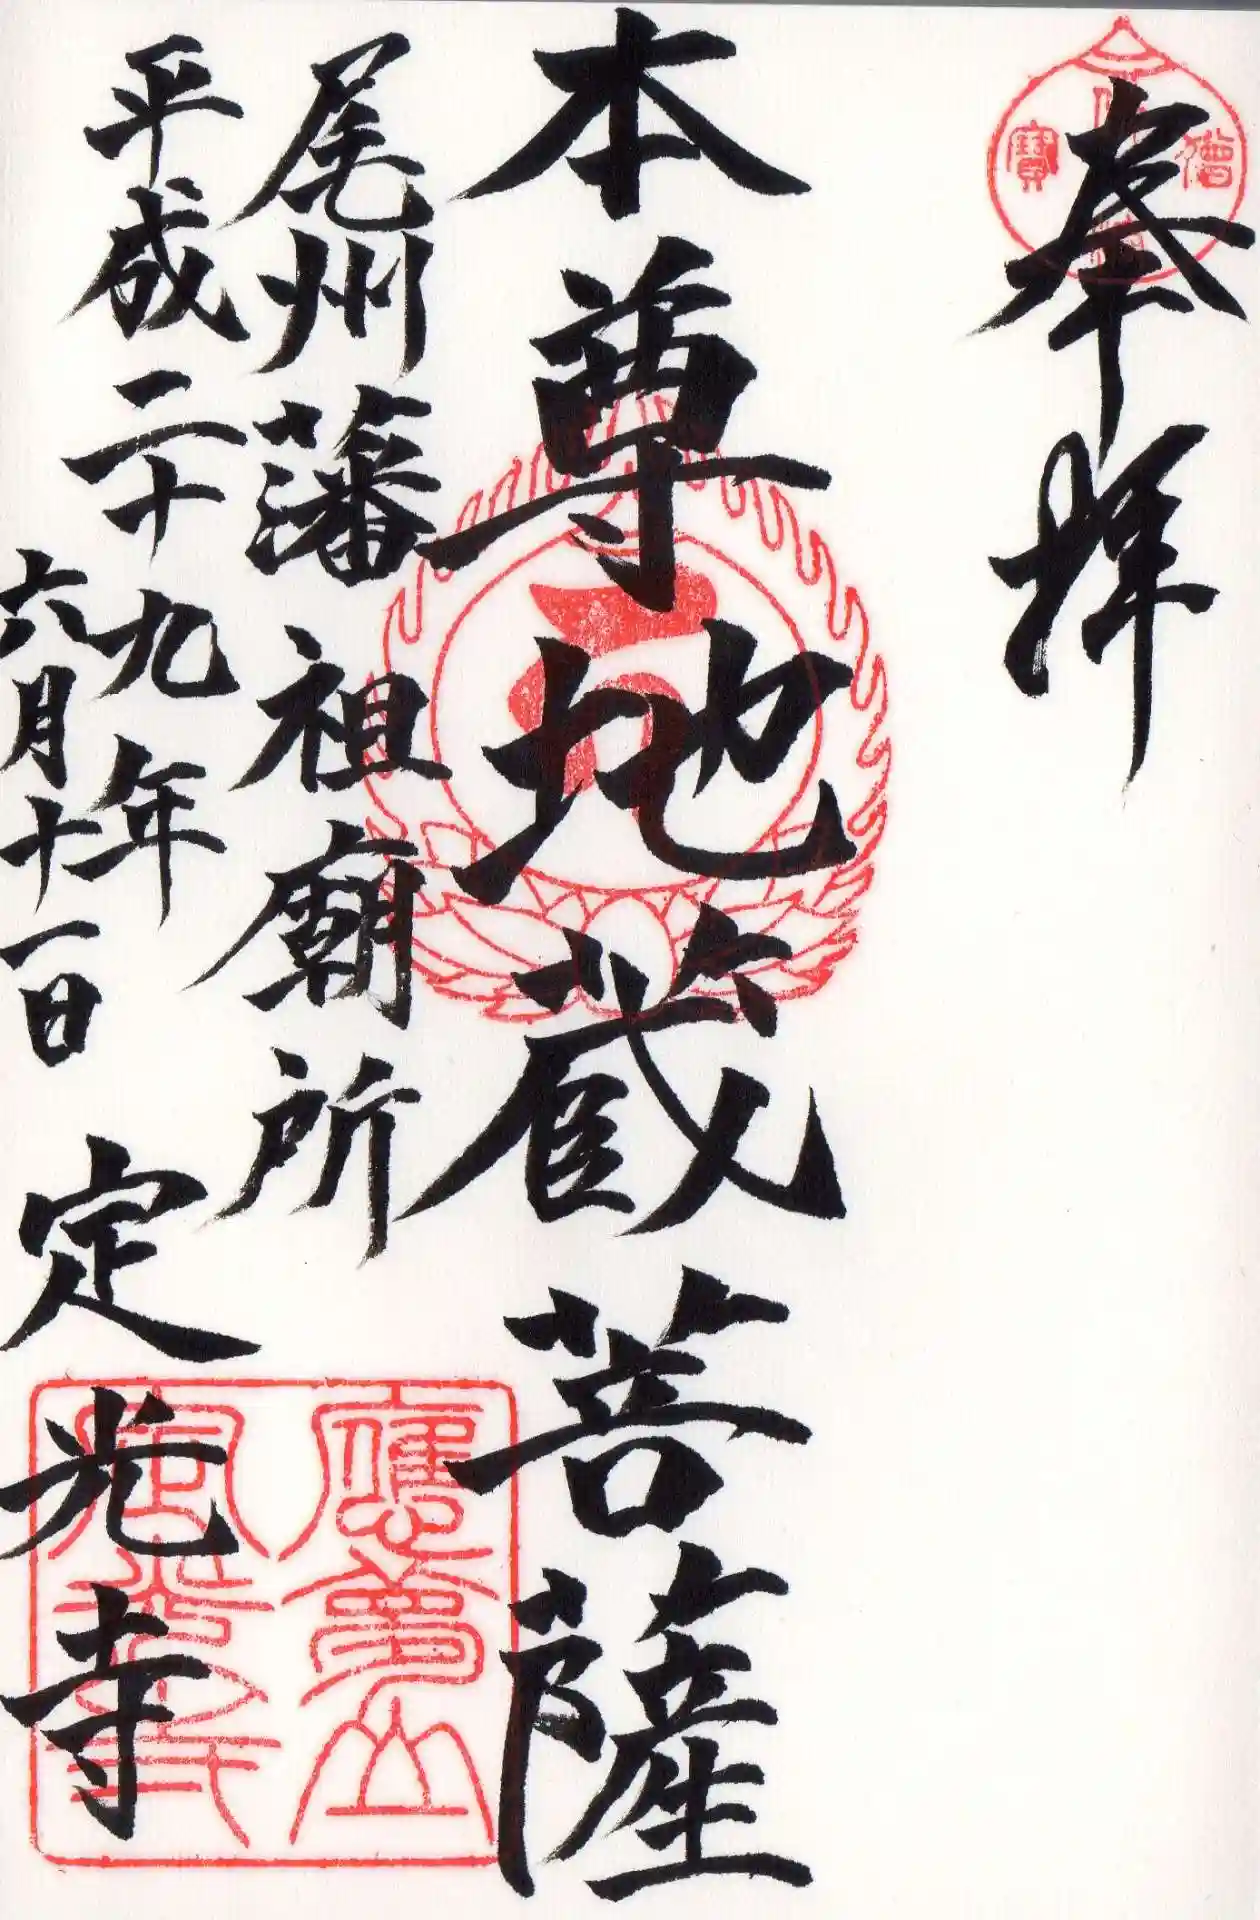 奉拝
本尊地蔵菩薩
尾州藩祖廟所
平成二十九年
六月十一日
定光寺
佛法僧寳
應夢山定光寺